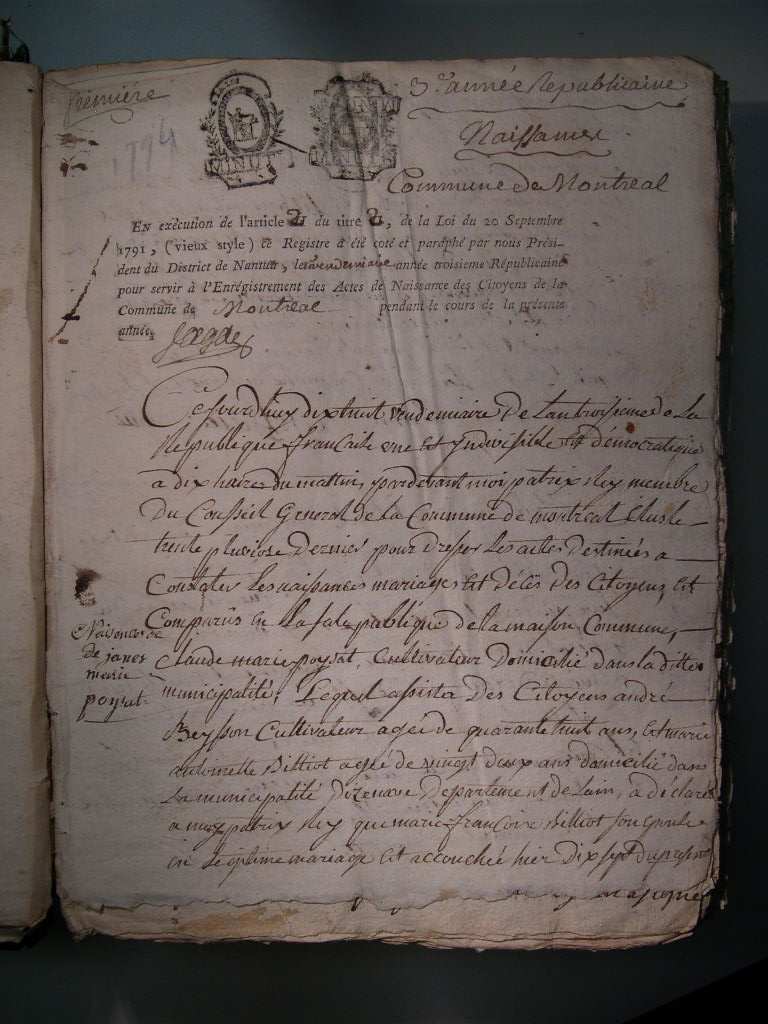 première
1794
MINUT
3e année Republicaine
Naissances
Commune de Montreal
EN exécution de l'article II du titre II, de la Loi du 20 Septembre
1791, (vieux style) ce Registre a été coté et paraphé par nous Prési-
dent du District de Nantua, le vendemiaire année troisieme Républicaine
pour servir à l'Enrégistrement des Actes de Naissance des Citoyens de la
Commune de Montreal pendant le cours de la présente
année.
Cejourdhuy dixhuit vendemiaire de Lan troisieme de La
Republique francaise une et yndivisible et démocratique
a dix heures du mattin, pardevant moi patrix Rey membre
Du Conseil General de la Commune de montreal Elu le
trente pluviose Dernier pour Dresser Les actes Destinées a
Constater Les naissances mariages Et Décès Des Citoyens, Est
Comparûs En La sale publique de la maison Commune,
Claude marie poysat, Cultivateur Domicilié dans la ditte
municipalité, Lequel assisté Des Citoyens andré
Beysson Cultivateur ageé de quarante huit ans, Et marie
antoinette Billiot ageé de vingt deux ans domicilié dans
La municipalité Dizenave Departement de Lain, a déclaré
a moy patrix Rey que marie françoise Billiot son Epouse
en Legitime mariage Est accouchée hier Dix sept Du present
Naisance de
de
marie
poysat